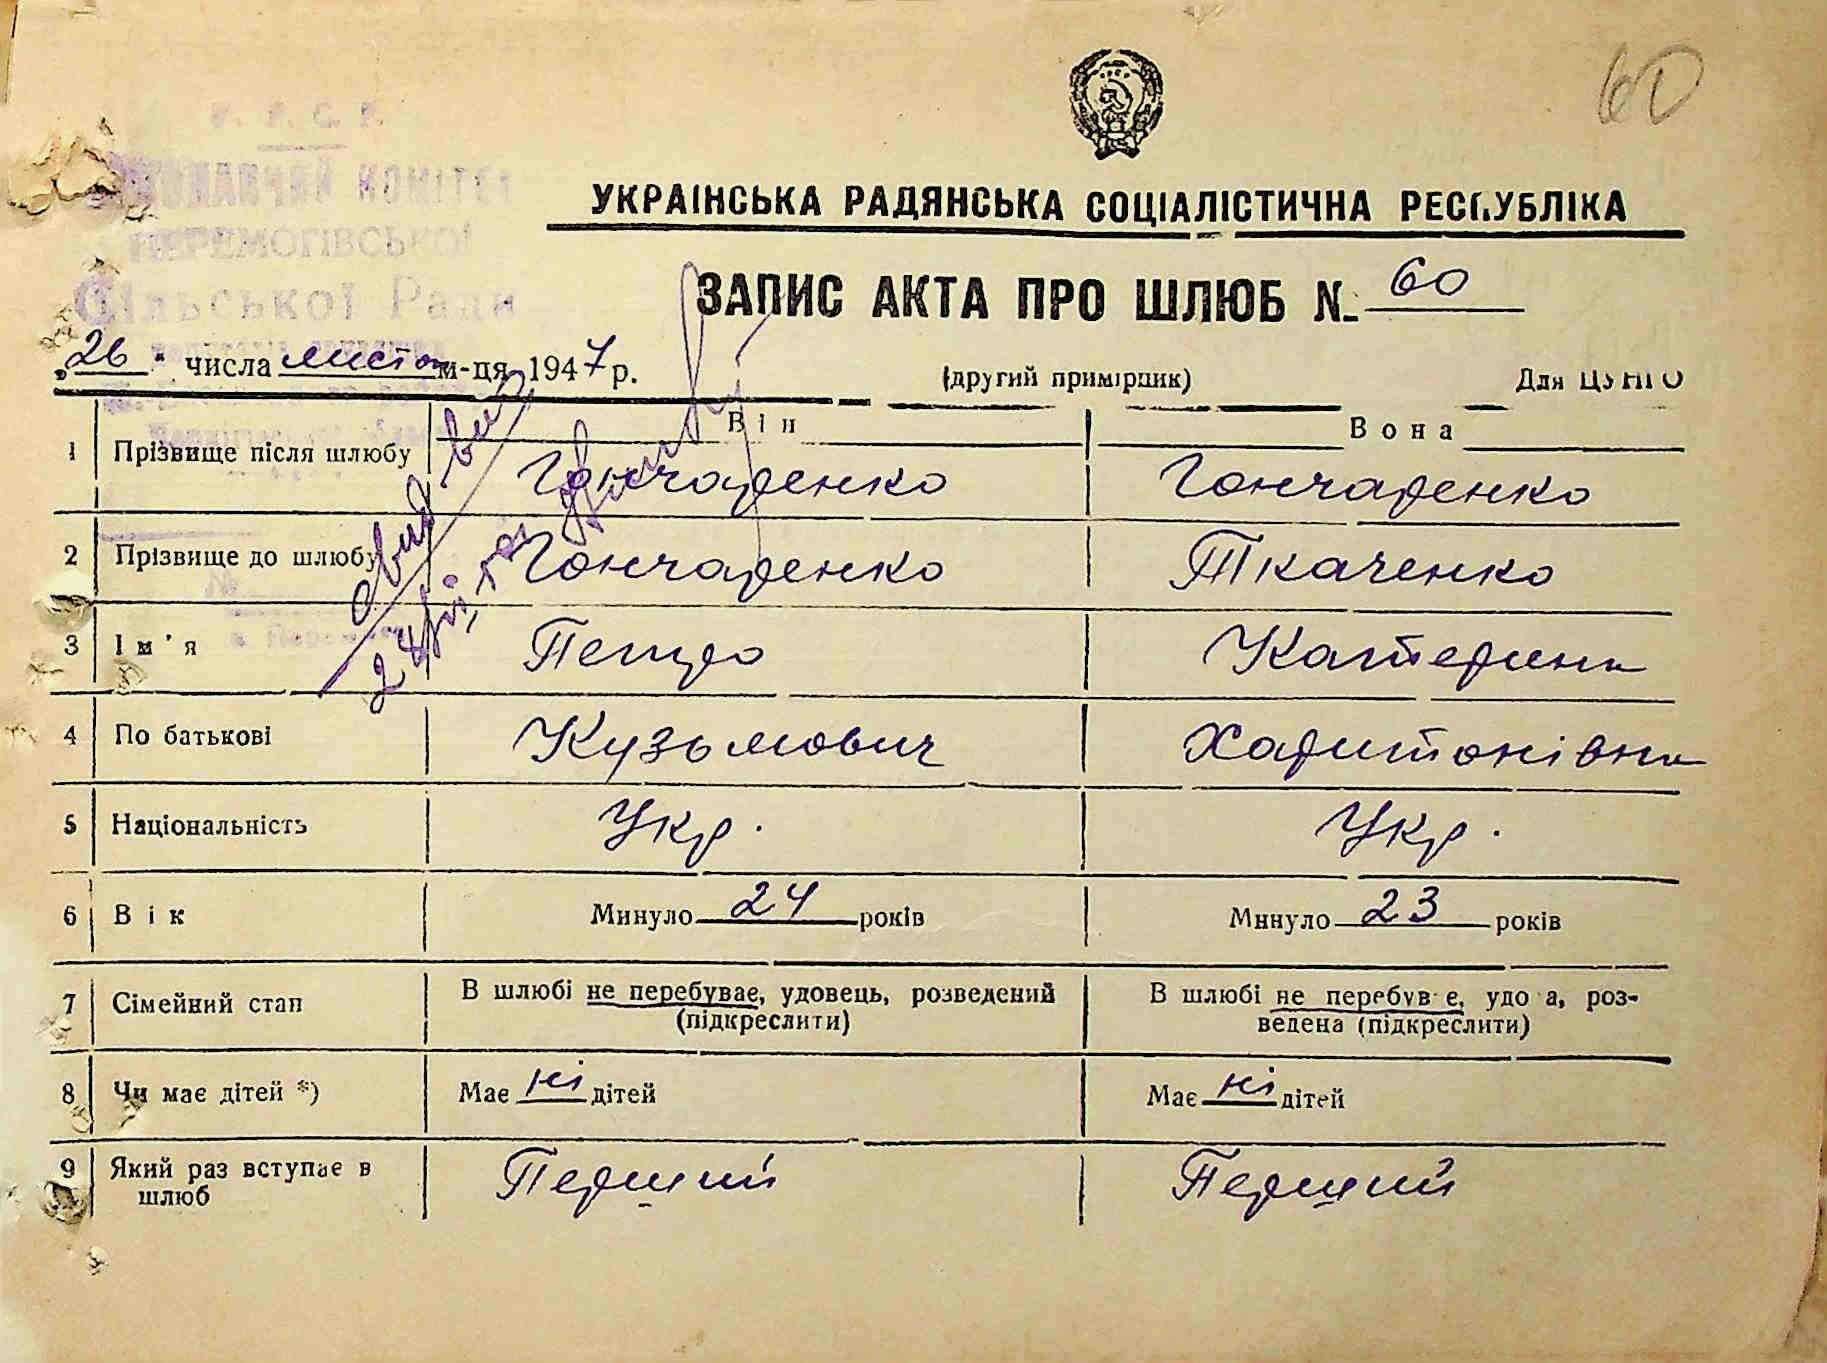 60
У. Р. С. Р.
ВИКОНАВЧИЙ КОМІТЕТ
ПЕРЕМОГІВСЬКОЇ
Сільської Ради
УКРАЇНСЬКА РАДЯНСЬКА СОЦІАЛІСТИЧНА РЕСПУБЛІКА
ЗАПИС АКТА ПРО ШЛЮБ № 60
„26“ числа листоп м-ця 1947 р.
(другий примірник) Для ЦУНГО
Він Вона
1 Прізвище після шлюбу Гончаренко Гончаренко
2 Прізвище до шлюбу Гончаренко Ткаченко
3 Ім'я Петро Катерина
4 По батькові Кузьмович Харитонівна
5 Національність Укр. Укр.
6 Вік Минуло 24 років Минуло 23 років
7 Сімейний стан В шлюбі не перебуває, удовець, розведений (підкреслити) В шлюбі не перебуває, удова, роз-
ведена (підкреслити)
8 Чи має дітей *) Має ні дітей Має ні дітей
9 Який раз вступає в Перший Перший
шлюб